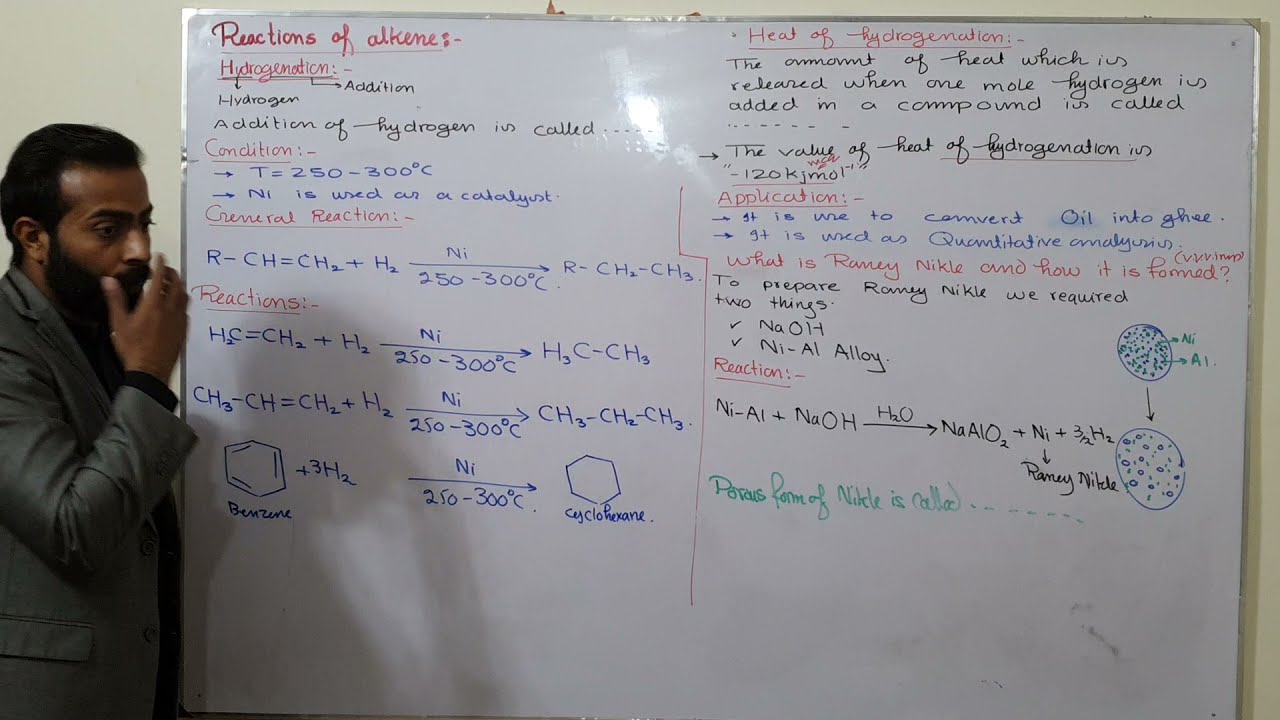 Reactions of alkene:-
Hydrogenation:-
Addition
Hydrogen
Addition of hydrogen is called ------
Condition:-
→ T = 250-300°C
→ Ni is used as a catalyst.
General Reaction:-
R-CH=CH₂ + H₂ Ni 250-300°C → R-CH₂-CH₃.
Reactions:-
H₂C=CH₂ + H₂ Ni 250-300°C → H₃C-CH₃
CH₃-CH=CH₂ + H₂ Ni 250-300°C → CH₃-CH₂-CH₃.
+3H₂ Ni 250-300°C →
Benzene
Cyclohexane.
Heat of hydrogenation:-
The amount of heat which is
released when one mole hydrogen is
added in a compound is called
-------
→ The value of heat of hydrogenation is
"-120kjmol⁻¹"
Application:-
→ It is use to convert Oil into ghee.
→ It is used as Quantitative analysis.
What is Raney Nikle and how it is formed? (v.v.v.imp)
To prepare Raney Nikle we required
two things.
✓ NaOH
✓ Ni-Al Alloy.
→ Ni
→ Al.
Reaction:-
Ni-Al + NaOH H₂O → NaAlO₂ + Ni + 3/2H₂
Raney Nikle
Porous form of Nikle is called --------